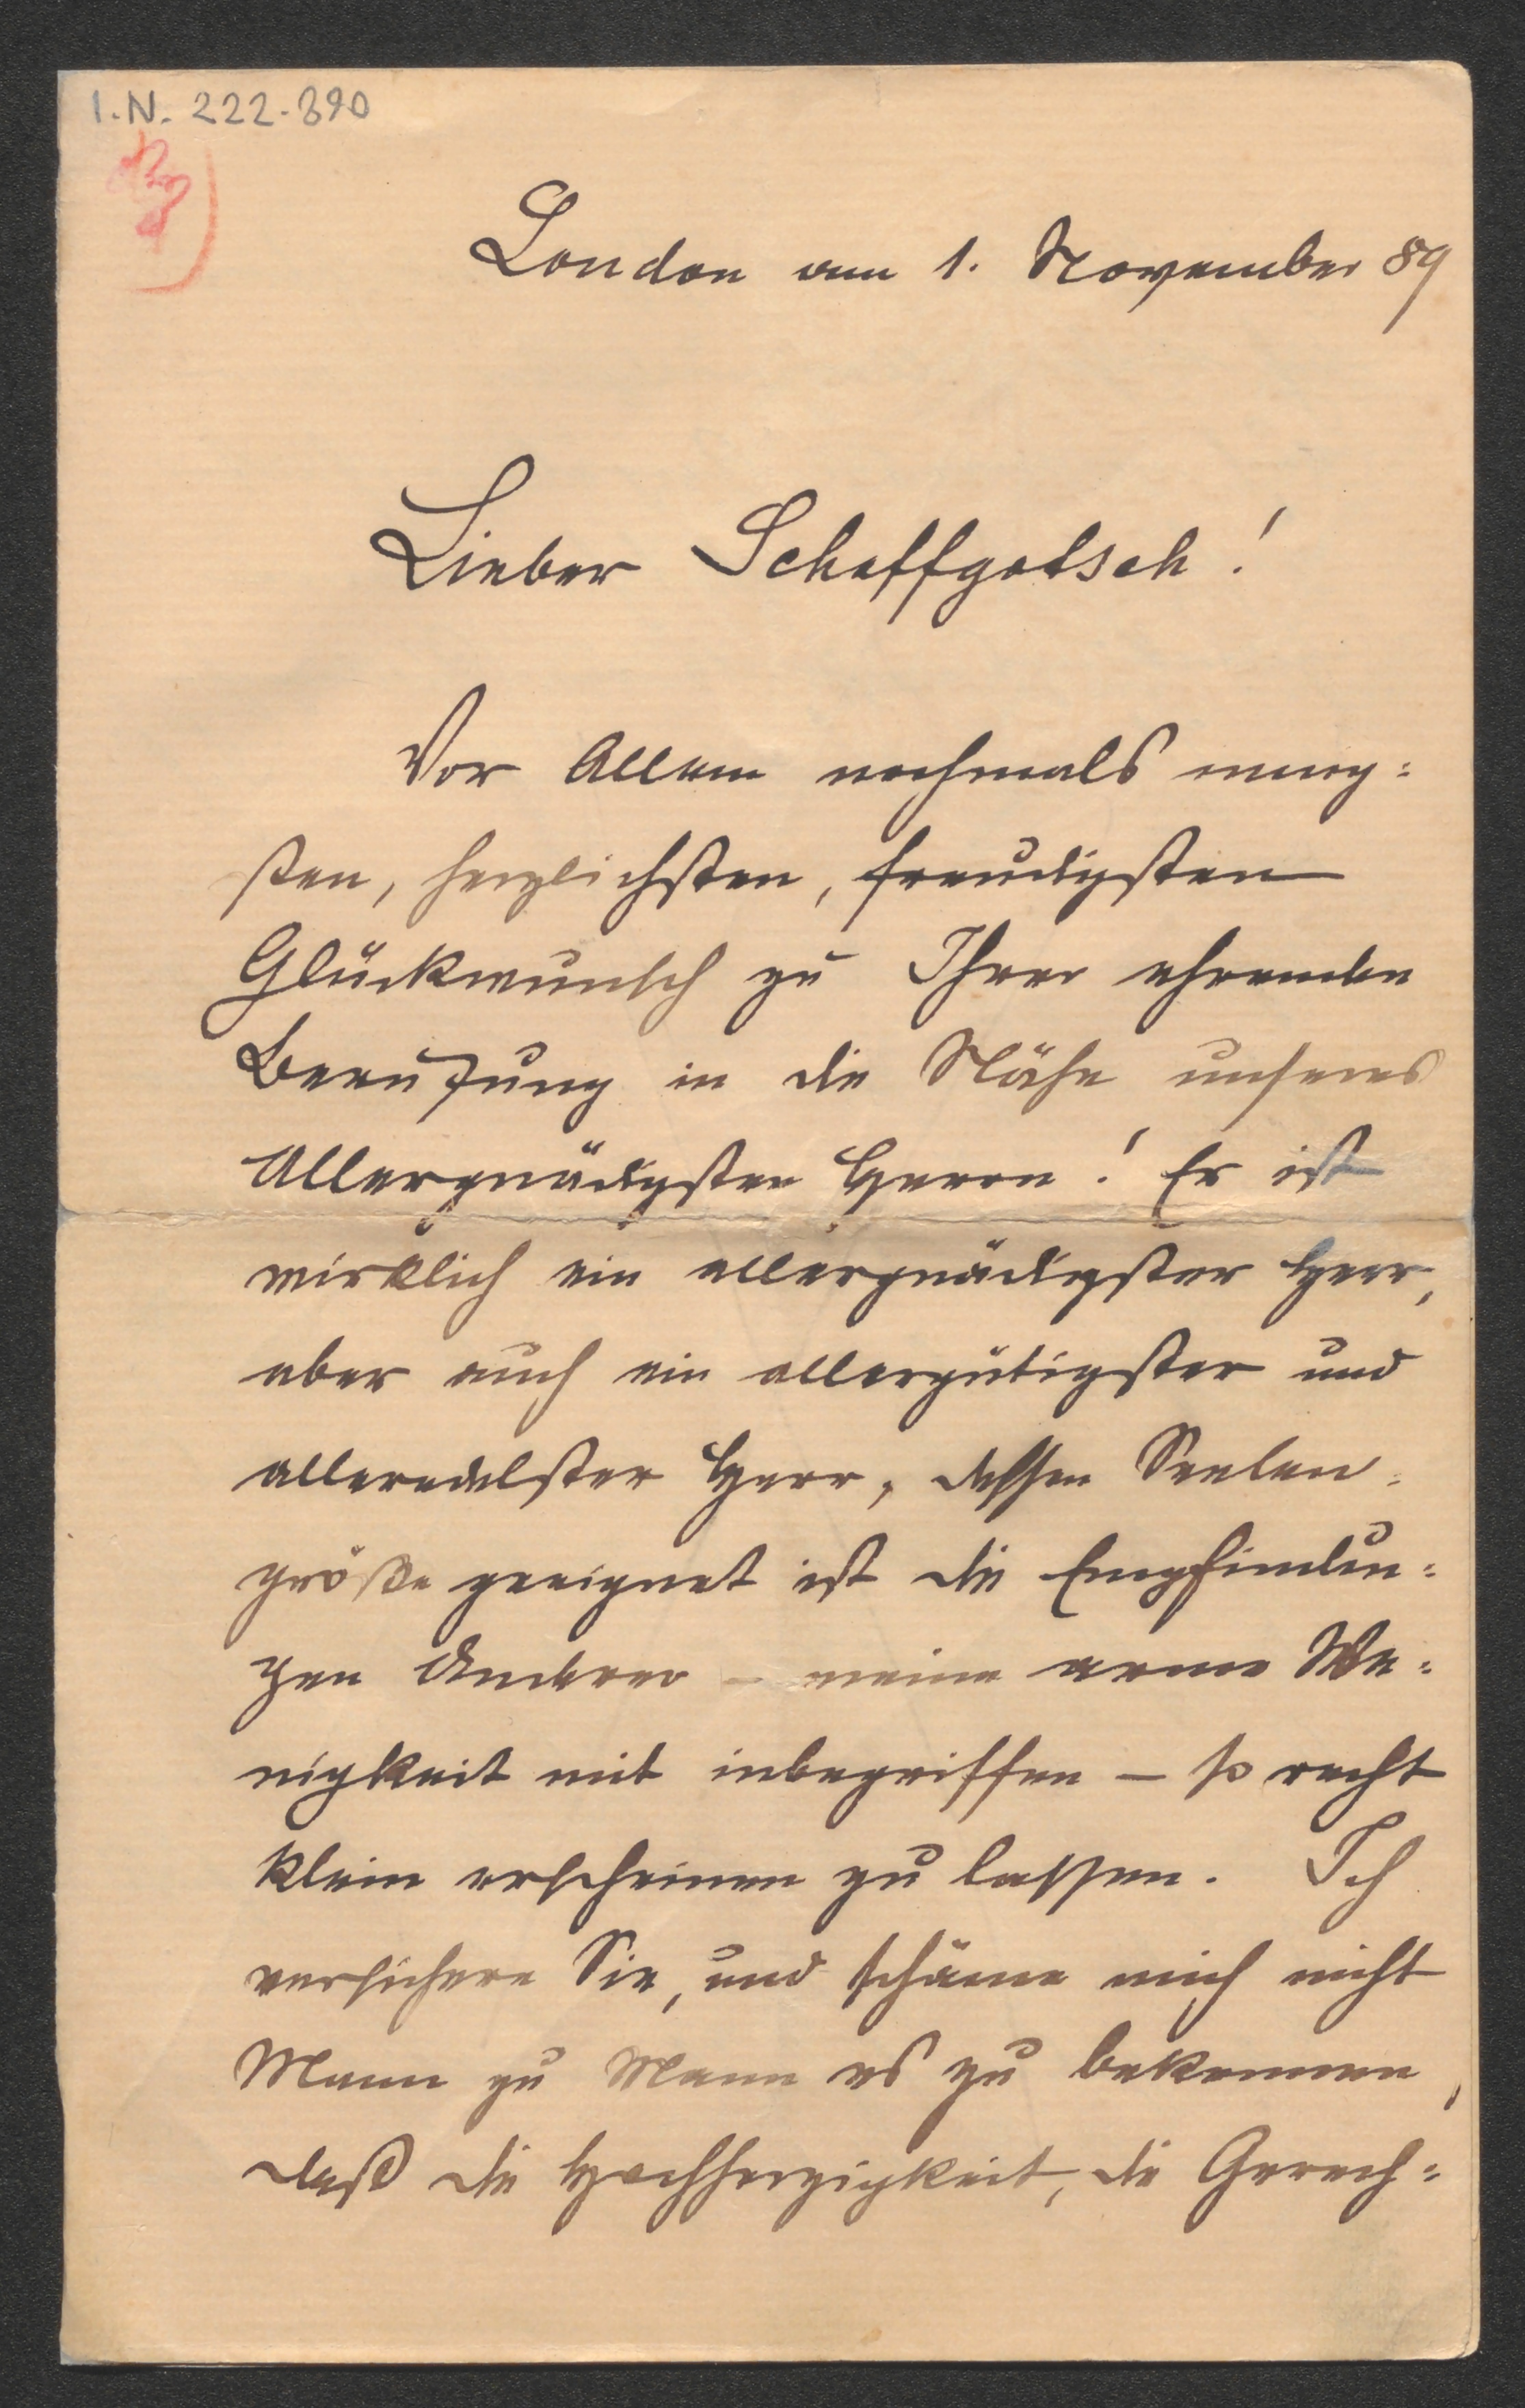 I.N. 222.390
London am 1. November 89
Lieber Schaffgotsch!
Vor Allem nochmals innig=
sten, herzlichsten, freudigsten
Glückwunsch zu Ihrer ehrenden
Berufung in die Nähe unseres
Allergnädigsten Herrn! Er ist
wirklich ein allergnädigster Herr,
aber auch ein allergütigster und
alleredelster Herr, dessen Seelen=
größe geeignet ist die Empfindun=
gen Anderer – meine arme We=
nigkeit mit inbegriffen – so recht
klein erscheinen zu lassen. Ich
versichere Sie, und schäme mich nicht
Mann zu Mann es zu bekennen,
daß die Hochherzigkeit, die Gerech=